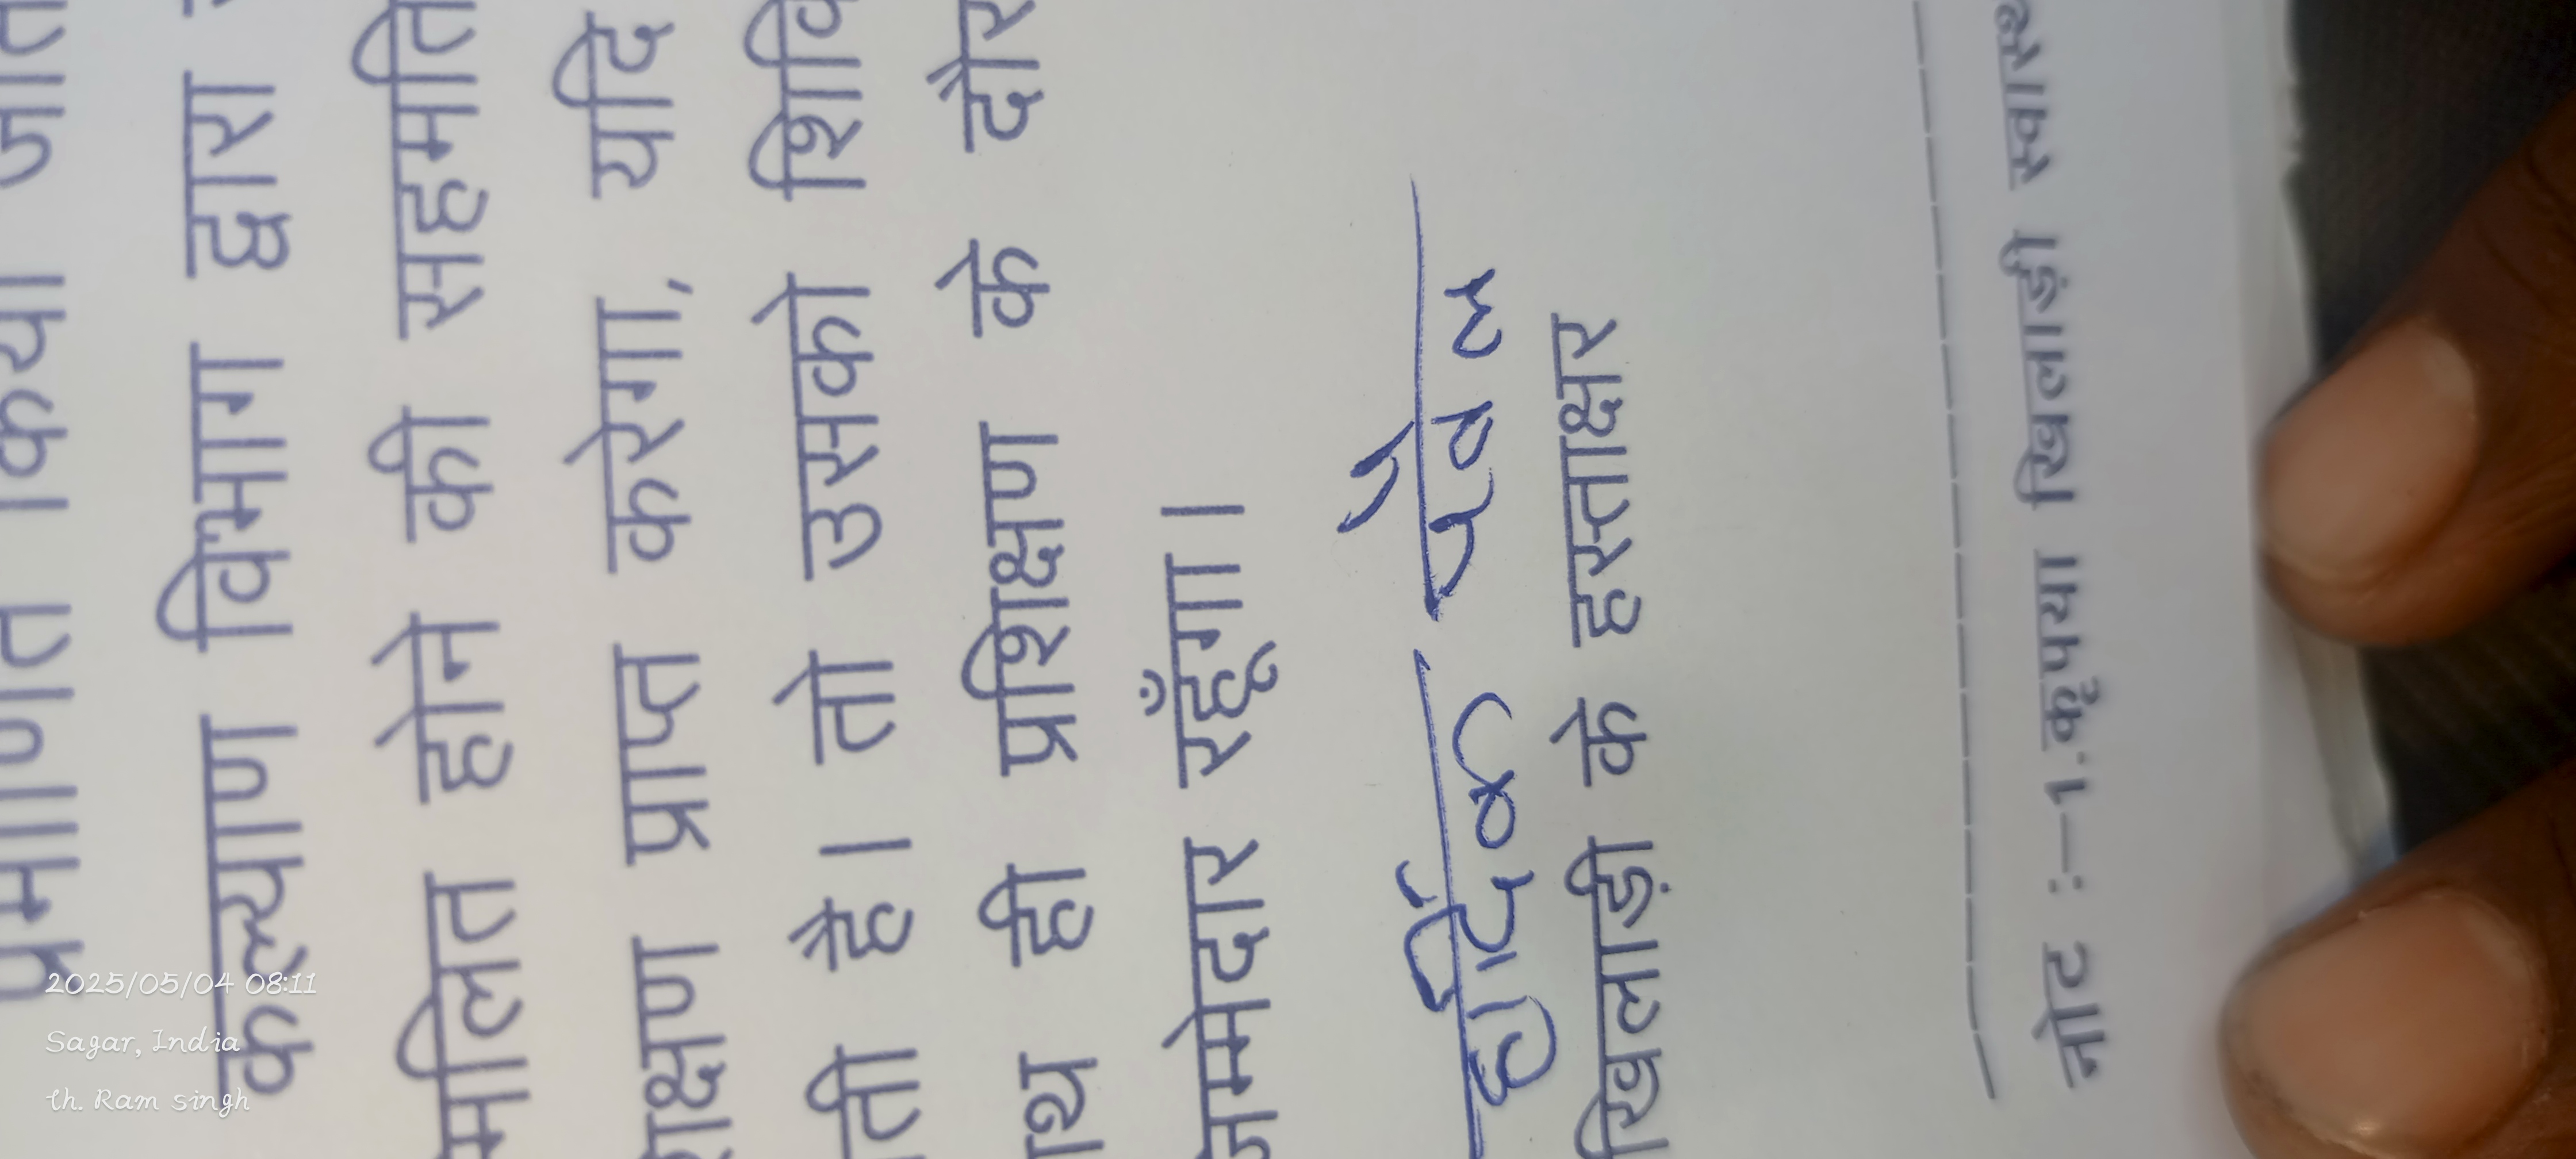 प्रमाणित किया जात
कल्याण विभाग द्वारा
मलित होने की सहमति
प्राप्त करेगा, यदि
ती है। तो उसको शिवि
ही प्रशिक्षण के दौर
रहूँगा।
हार्दिक
खिलाड़ी के हस्ताक्षर
नोट :—1.कृपया खिलाड़ी स्वयं
2025/05/04 08:11
Sagar, India
th. Ram singh